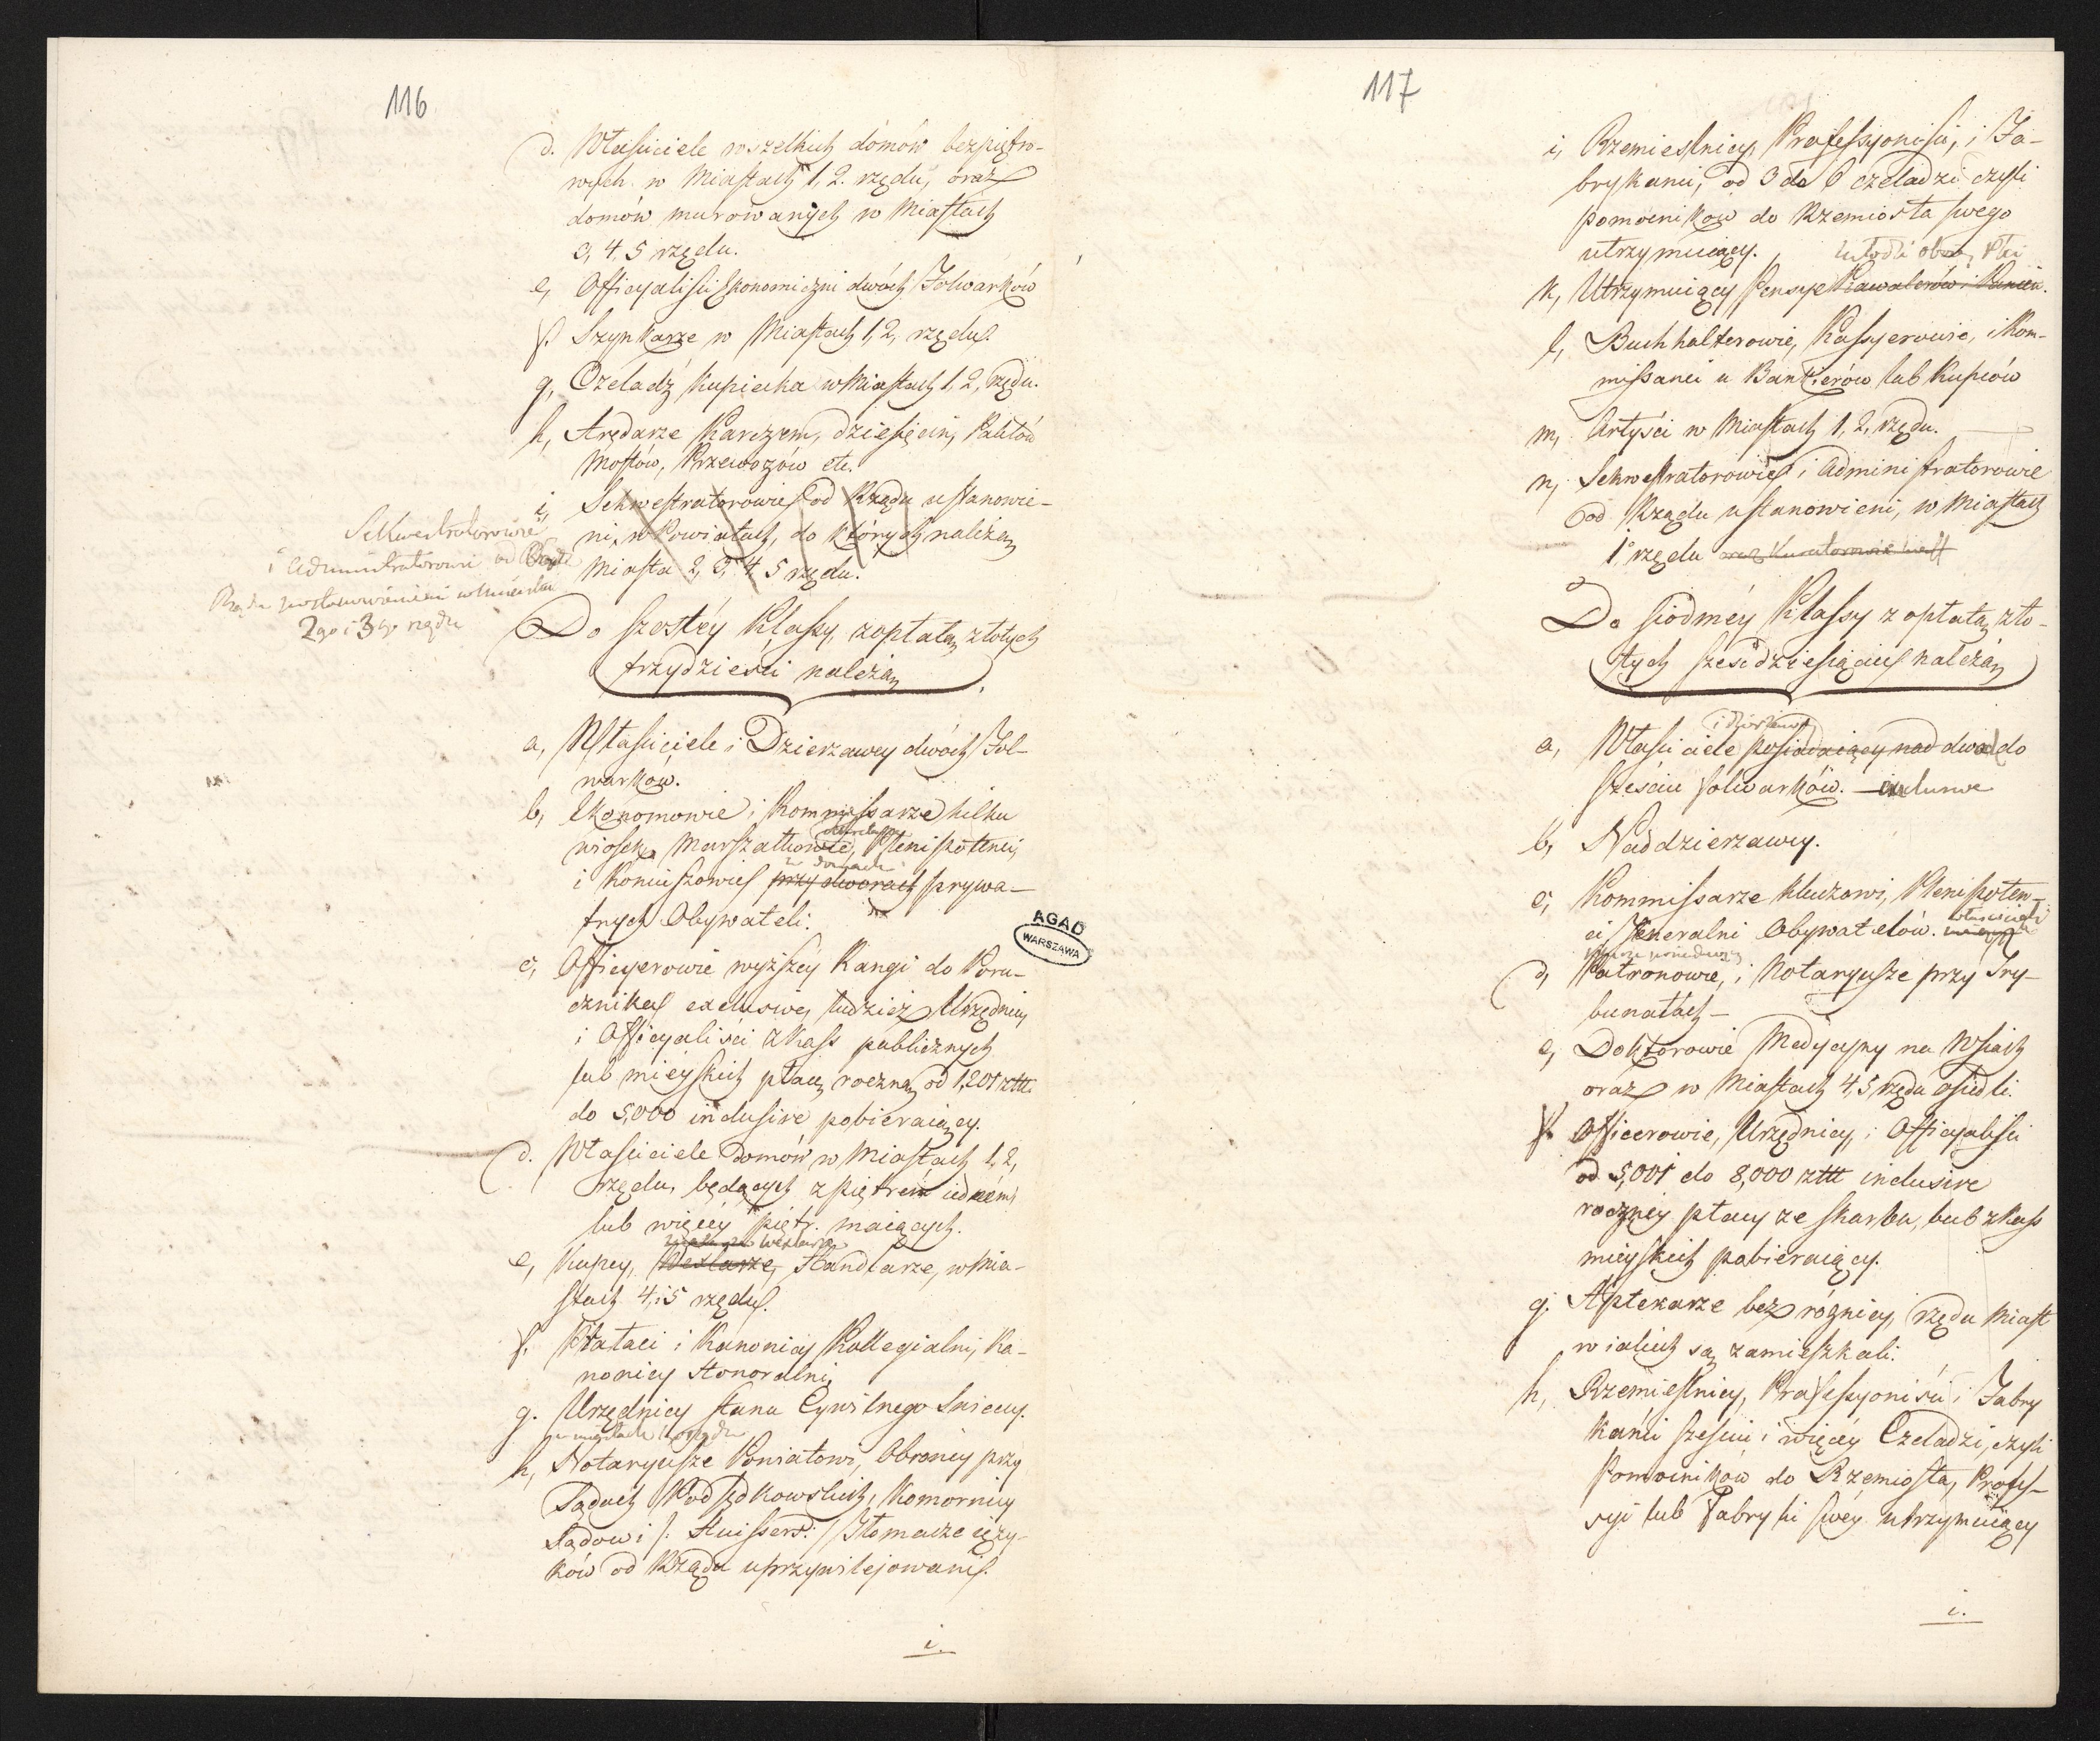 116
d. Właściciele wszelkich dómów bezpiętro-
wych w Miastach 1, 2. rzędu, oraz
domów murowanych w Miastach
3, 4. 5 rzędu.
e, Officyaliści Ekonomiczni dwóch Folwarków
f. Szynkarze w Miastach 1, 2, rzędu.
g, Czeladź kupiecka w Miastach 1, 2, rzędu.
h, Arędarze Karczem, dziesięcin, Palitów
Mostów, Przewozów etc.
i, Sekwestratorowie od Rządu ustanowie-
ni, w Powiatach, do których należą
Miasta 2, 3, 4. 5 rzędu.
Sekwestratorowie
i Administratorowie od
Rządu postanowieni w Miastach
2go i 3go rzędu
Do szóstéy Klassy, z opłatą złotych
trzydzieści należą
a, Właściciele i Dzierzawcy dwóch Fol-
warków.
b, Ekonomowie i Kommissarze kilku
wiosek, Marszałkowie, Plenipotenci,
w domach
i Koniuszowie przy dworach prywa-
tnych Obywateli.
c, Officyerowie wyższéy Rangi do Poru-
cznika exclusive, tudzież Urzędnicy
i Officyaliści z Kass publicznych
lub mieyskich płacę roczną od 1,201 złtt.
do 5,000 inclusive pobieraiący.
d. Właściciele domów w Miastach 1, 2,
rzędu, będących z piętrem iedném
lub więcéy piętr. maiących.
wexlarze
e, Kupcy, Wexlarze, Handlarze, w Mia-
stach 4, i 5 rzędu.
f. Prałaci i Kanonicy Kollegialni, Ka-
nonicy Honoralni,
g. Urzędnicy Stanu Cywilnego Swieccy.
w miastach 1 rzędu
h, Notaryusze Powiatowi, Obroncy przy
Sądach Podsędkowskich, Komornicy
Sądowi /: Huissers :/ Tłomacze ięzy-
ków od Rządu uprzywilejowani.
i.
AGAD
WARSZAWA
117
i, Rzemieslnicy, Professyoniści, i Fa-
brykanci, od 3 do 6 czeladzi czyli
pomocników do Rzemiosła swego
utrzymuiący.
młodzi oboiey płci
k, Utrzymuiący Pensye Kawalerów i Panien.
l, Buchhalterowie, Kassyerowie, i Kom-
missanci u Bankierów lub Kupców
m, Artyści w Miastach 1, 2, rzędu.
n, Sekwestratorowie i Administratorowie
od Rządu ustanowieni, w Miastach
1, rzędu oraz Kuratorowie
Do siódméy Klassy z opłatą zło-
tych sześćdziesiąciu należą
i dzierżawcy
a, Właściciele posiadaiący nad dwa do
sześciu folwarków. inclusive
b, Naddzierzawcy.
c, Kommissarze kluczowi, Plenipoten-
ci Jeneralni Obywatelów.
właścicieli
d, Patronowie, i Notaryusze przy Try-
bunałach –
e, Doktorowie Medycyny na Wsiach
oraz w Miastach 4, 5 rzędu osiedli.
f. Officerowie, Urzędnicy, i Officyaliści
od 5,001 do 8,000 złtt inclusive
roczney płacy ze skarbu, lub z kass
mieyskich pobieraiący.
g. Aptekarze bez różnicy, rzędu Miast
w iakich są zamieszkali.
h, Rzemieslnicy, Professyoniści i Fabry
kanci sześciu i więcéy Czeladzi, czyli
Pomocników do Rzemiosła, Profes-
syi lub Fabryki swéy utrzymuiący
i.